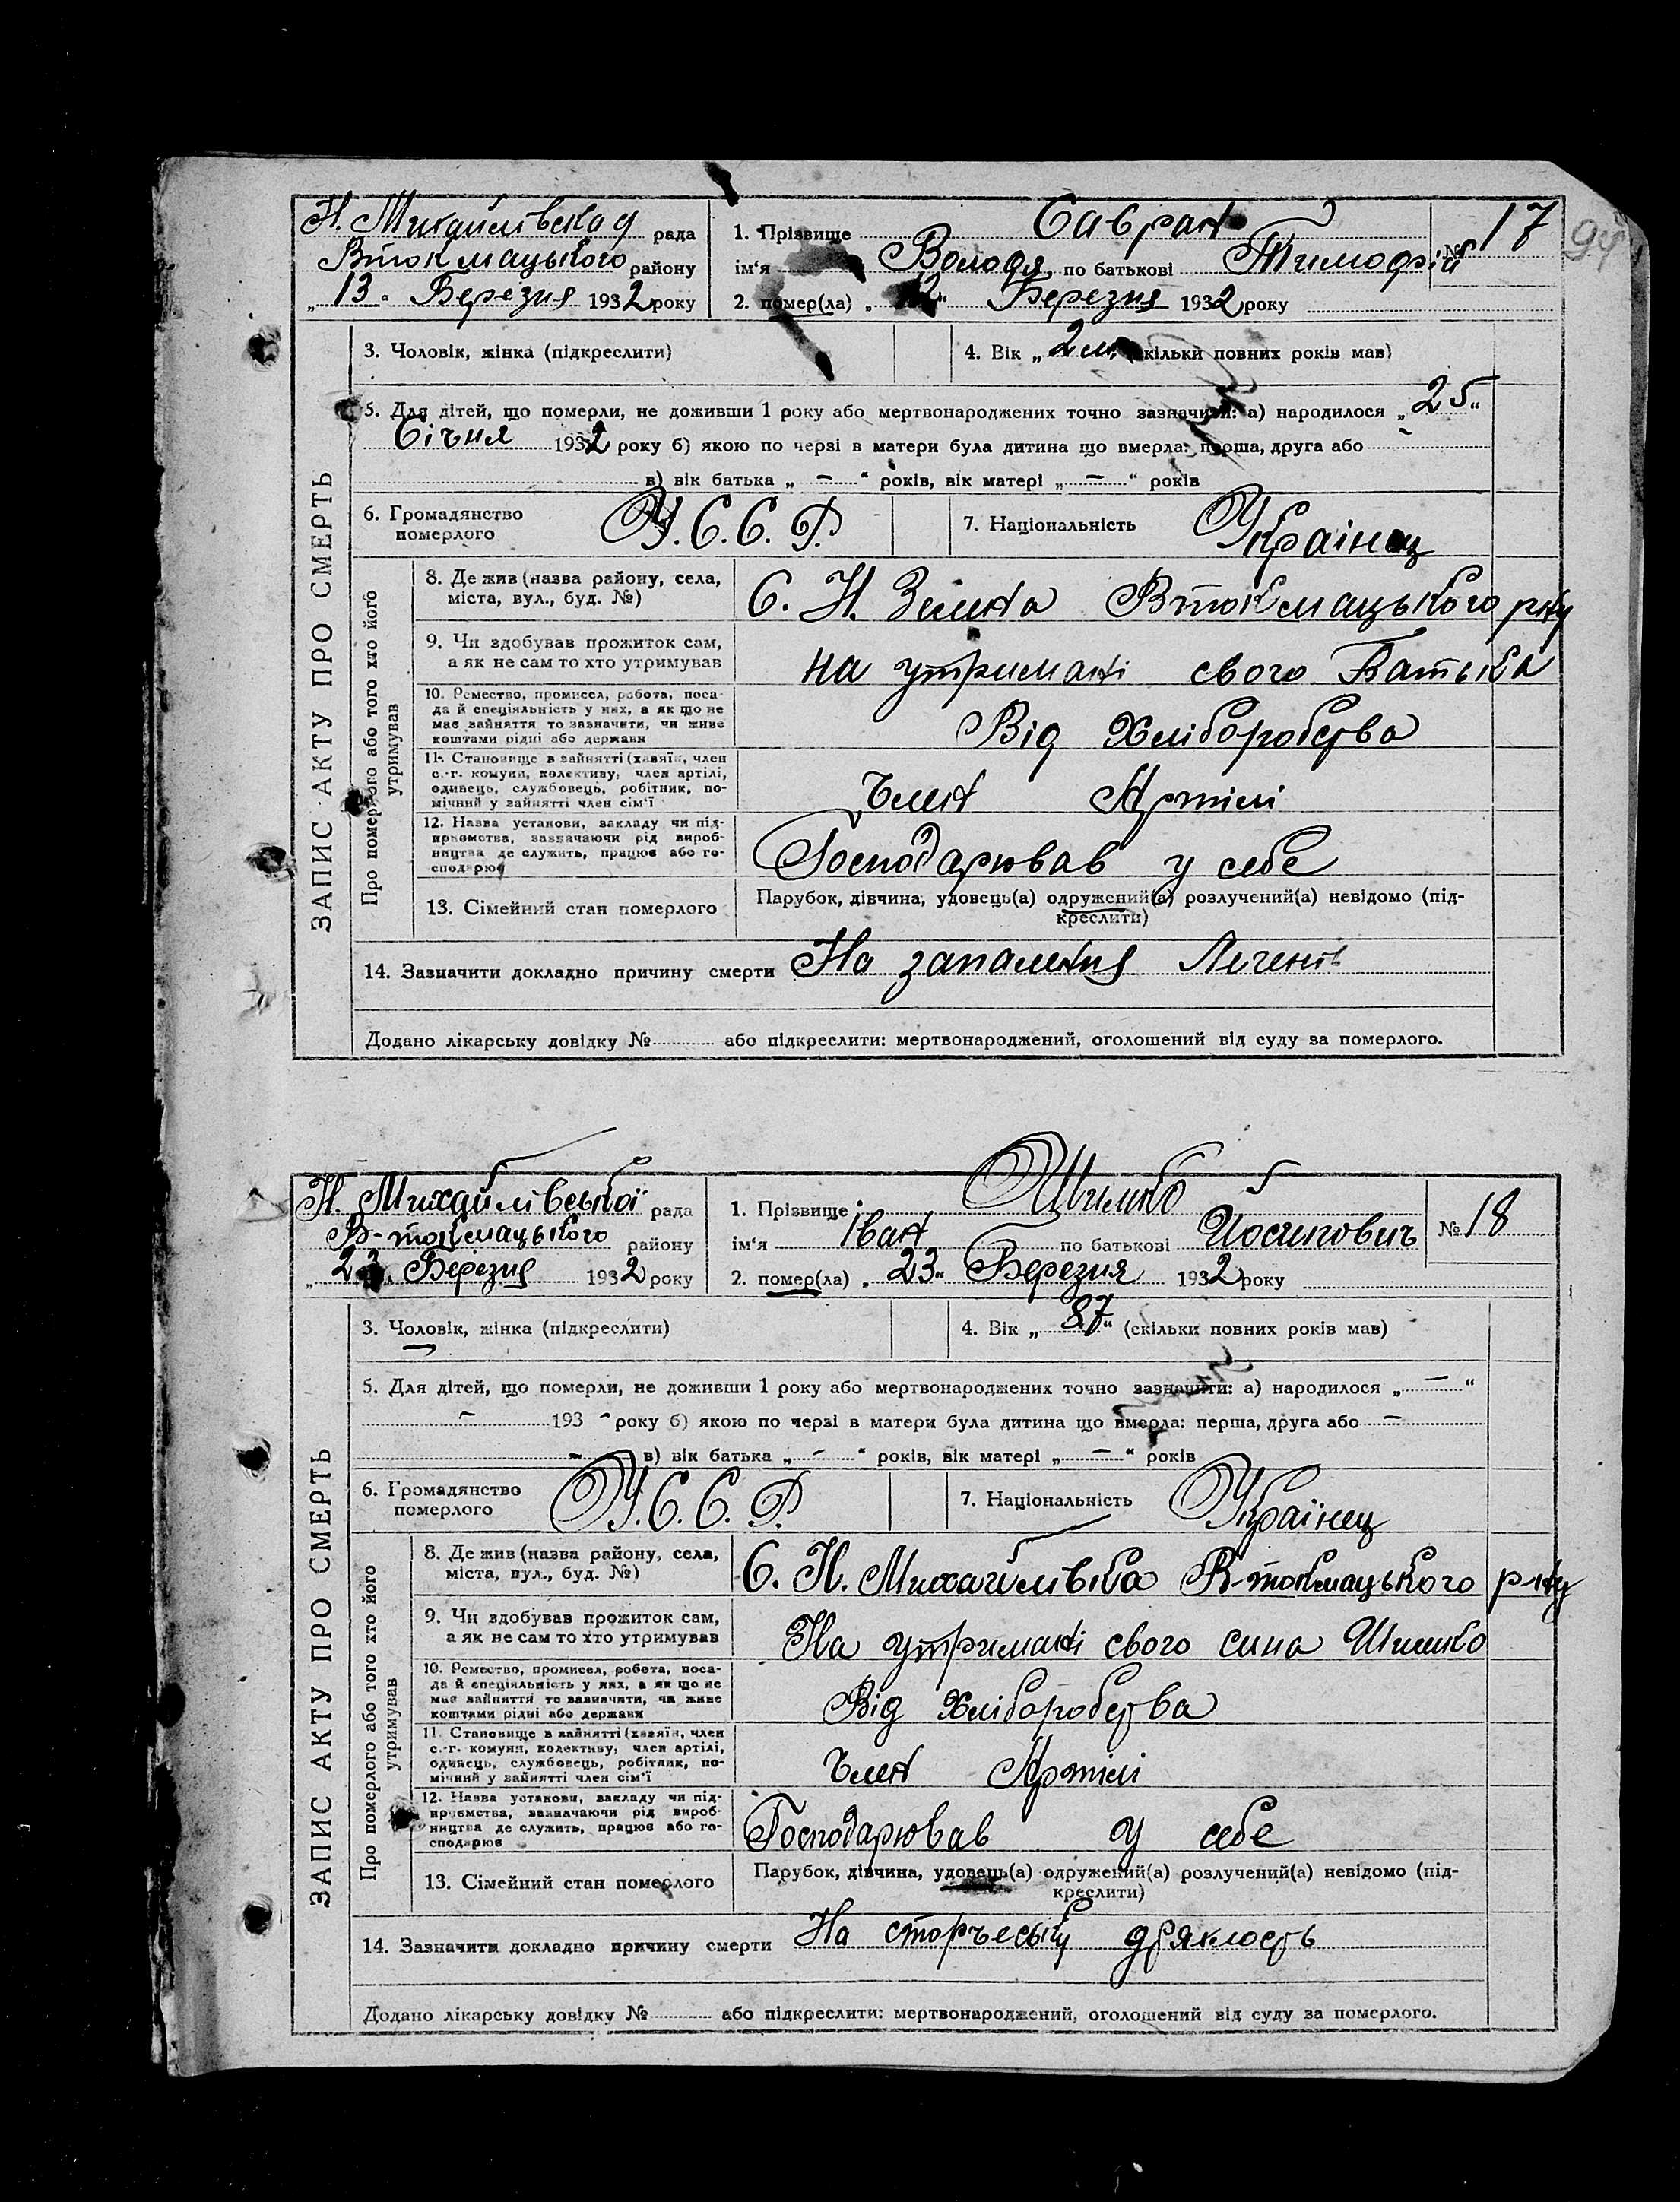 Н. Михайлівська рада
Втокмацького району
„13" Березня 1932 року
1. Прізвище Савран
ім'я Володя, по батькові Тимофій
№ 17
94
2. помер(ла) „12" Березня 1932 року
ЗАПИС АКТУ ПРО СМЕРТЬ
3. Чоловік, жінка (підкреслити)
4. Вік „2 м." (скільки повних років мав)
5. Для дітей, що померли, не доживши 1 року або мертвонароджених точно зазначити: а) народилося „25"
Січня 1932 року б) якою по черзі в матери була дитина що вмерла: перша, друга або -
в) вік батька „ – " років, вік матері „ – " років
6. Громадянство померлого У.С.С.Р.
7. Національність Українец
Про померлого або того хто його утримував
8. Де жив (назва району, села, міста, вул., буд. №)
С. Н. Зилка Втокмацького р-ну
9. Чи здобував прожиток сам, а як не сам то хто утримував
на утримані свого Батька
10. Ремество, промисел, робота, посада й спеціяльність у них, а як що не має зайняття то зазначити, чи живе коштами рідні або держави
Від Хліборобства
11. Становище в зайнятті (хазяїн, член с.-г. комуни, колективу, член артілі, одинець, службовець, робітник, помічний у зайнятті член сім'ї
Член Артілі
12. Назва установи, закладу чи підприємства, зазначаючи рід виробництва де служить, працює або господарює
Господарював у себе
13. Сімейний стан померлого
Парубок, дівчина, удовець(а) одружений(а) розлучений(а) невідомо (підкреслити)
14. Зазначити докладно причину смерти На запалення Легенів
Додано лікарську довідку № або підкреслити: мертвонароджений, оголошений від суду за померлого.
Н. Михайлівської рада
В-токмацького району
„23" Березня 1932 року
1. Прізвище Шишко
ім'я Іван по батькові Йосипович
№ 18
2. помер(ла) „23" Березня 1932 року
ЗАПИС АКТУ ПРО СМЕРТЬ
3. Чоловік, жінка (підкреслити)
4. Вік „87" (скільки повних років мав)
5. Для дітей, що померли, не доживши 1 року або мертвонароджених точно зазначити: а) народилося „ – "
– 193 - року б) якою по черзі в матери була дитина що вмерла: перша, друга або –
– в) вік батька „ – " років, вік матері „ – " років
6. Громадянство померлого У.С.С.Р.
7. Національність Українец
Про померлого або того хто його утримував
8. Де жив (назва району, села, міста, вул., буд. №)
С. Н. Михайлівка В-токмацького р-ну
9. Чи здобував прожиток сам, а як не сам то хто утримував
На утримані свого сина Шишко
10. Ремество, промисел, робота, посада й спеціяльність у них, а як що не має зайняття то зазначити, чи живе коштами рідні або держави
Від Хліборобства
11. Становище в зайнятті (хазяїн, член с.-г. комуни, колективу, член артілі, одинець, службовець, робітник, помічний у зайнятті член сім'ї
Член Артілі
12. Назва установи, закладу чи підприємства, зазначаючи рід виробництва де служить, працює або господарює
Господарював у себе
13. Сімейний стан померлого
Парубок, дівчина, удовець(а) одружений(а) розлучений(а) невідомо (підкреслити)
14. Зазначити докладно причину смерти На старческу дряхлость
Додано лікарську довідку № або підкреслити: мертвонароджений, оголошений від суду за померлого.